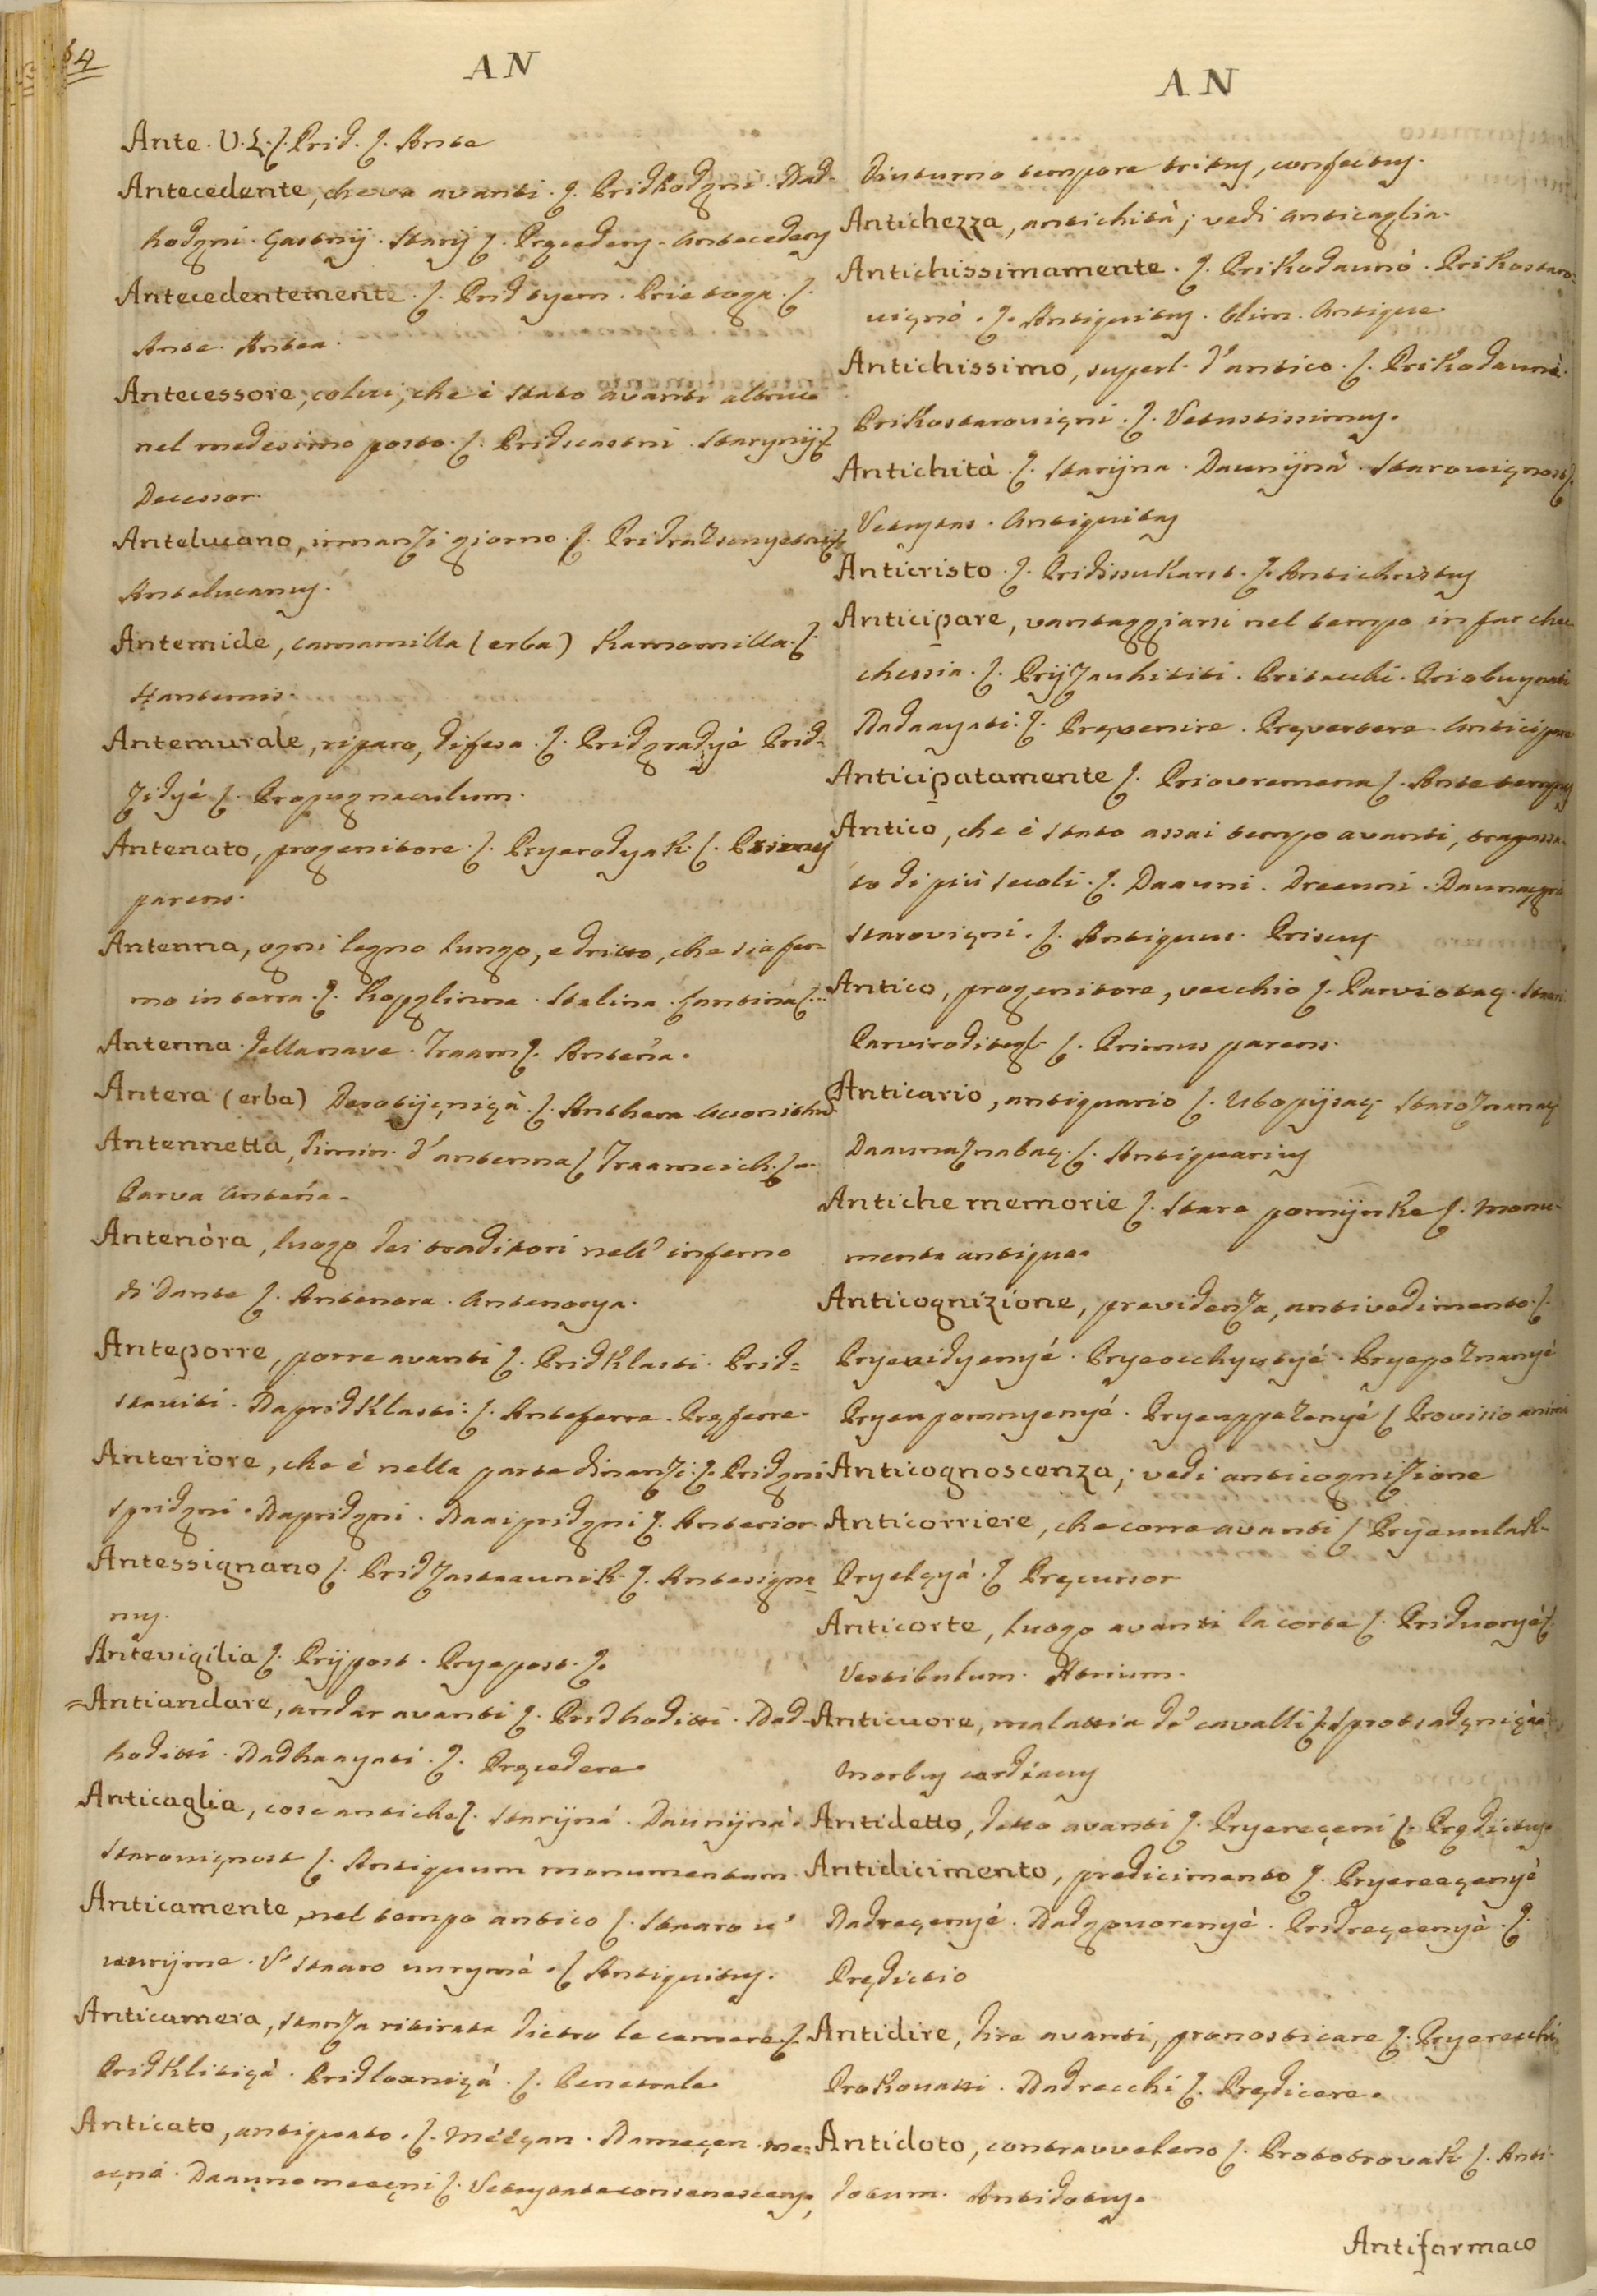 64
AN
Ante. V. L. ſ. Prid. ſ. Ante
Antecedente, che va avanti. ſ. Pridhodgni. Nad-
hodgni. Gastnij. Starij ſ. Pręcedens. Antecedens
Antecedentemente. ſ. Prid tyem. Prie toga. ſ.
Ante. Antea.
Antecessore, colui, che è stato avanti altrui
nel medesimo posto. ſ. Pridscastni. Starynij ſ.
Decessor.
Antelucano, innanzi giorno. ſ.
Antelucanus.
Antemide, camamilla (erba) Kamomilla. ſ.
Hantemis.
Antemurale, riparo, difesa. ſ. Pridgradyé Prid-
zidyé ſ. Propugnaculum.
Antenato, progenitore. ſ. Pryerodyak. ſ. Primus
parens.
Antenna, ogni legno lungo, e dritto, che sia fer-
mo in terra. ſ. Kopglinna. Stalina. ſ.
Antenna della nave. Traam ſ. Anteña.
Antera (erba) ſ. Anthera
Antennetta, dimin. d'antenna ſ. Traamcich. ſ.
Parva Anteña.
Antenòra, luogo dei traditori nell' inferno
di Dante ſ. Antenora. Antenorya.
Anteporre, porre avanti ſ. Pridklasti. Prid=
staviti. Napridklasti: ſ. Anteferre. Pręferre.
Anteriore, che è nella parte dinanzi: ſ. Pridgni
Spridgni. Napridgni. Naaipridgni ſ. Anterior.
Antessignano ſ. Pridzastaaunik. ſ. Antesigna
nus.
Antevigilia ſ. Prijpost. Pryepost. ſ.
=Antiandare, andar avanti ſ. Pridhoditti. Nad-
hoditti. Nadhaayati. ſ. Pręcedere.
Anticaglia, cose antiche ſ. Starijná. Daunijná.
Starouignost ſ. Antiquum monumentum.
Anticamente, nel tempo antico ſ. Staaro u'
uurijme. V' staaro uurymè. ſ. Antiquitus.
Anticamera, stanza ritirata dietro le camere. ſ.
Pridklitigà. Pridloxnigá. ſ. Penetrale
Anticato, antiquato. ſ. Nameçen.
ſ. Vetustate consenescens,
AN
Diuturno tempore tritus, confectus.
Antichezza, antichità; vedi anticaglia.
Antichissimamente. ſ. Prikodaunó. Prikostaro-
uignò. ſ. Antiquitus. Olim. Antique
Antichissimo, superl. d'antico. ſ. Prikodauni.
Prikostarouigni. ſ. Vetustissimus.
Antichità. ſ. Starijna. Daunijná. Starouignost ſ.
Vetustas. Antiquitas
Anticristo. ſ. Pridissukarst. ſ. Antichristus
Anticipare, vantaggiarsi nel tempo in far che-
chessia. ſ. Prijzauhititi. Pritecchi.
Nadaayati. ſ. Pręvenire. Pręvertere. Anticipare
Anticipatamente ſ. Priovremena ſ. Ante tempus
Antico, che è stato assai tempo avanti, trapassa-
to di più secoli. ſ. Daauni. Dreeuni.
starovigni. ſ. Antiquus. Priscus.
Antico, progenitore, vecchio ſ. Parviotaç.
Parviroditegl. ſ. Primus parens.
Anticario, antiquario ſ. Utopijsaç. Staroznanaç
Daaunaznabaç. ſ. Antiquarius
Antiche memorie ſ. Stare pomijnke ſ. Monu-
menta antiqua.
Anticognizione, previdenza, antivedimento. ſ.
Pryevidyenyé. Pryeocchyutyé. Pryepoznanyé
Pryeupomnyenyé. Pryeuppazenyé ſ. Provisio animi
Anticognoscenza; vedi anticognizione
Anticorriere, che corre avanti ſ. Pryeuulak.
Pryetgyà. ſ. Pręcursor
Anticorte, luogo avanti la corte ſ. Pridvoryé ſ.
Vestibulum. Atrium.
Anticuore, malattia de' cavalli ſ.
Morbus cardiacus
Antidetto, detto avanti ſ. Pryereçeni ſ. Prędictus.
Antidicimento, predicimento ſ. Pryereeçenyé
Nadreçenyé. Nadgovorenyé. Pridreçeenyé. ſ.
Prędictio
Antidire, dire avanti, pronosticare ſ. Pryerecchi,
Prokouatti. Nadrecchi ſ. Prędicere.
Antidoto, contravveleno ſ. Prototrovak ſ. Anti-
dotum. Antidotus.
Antifarmaco